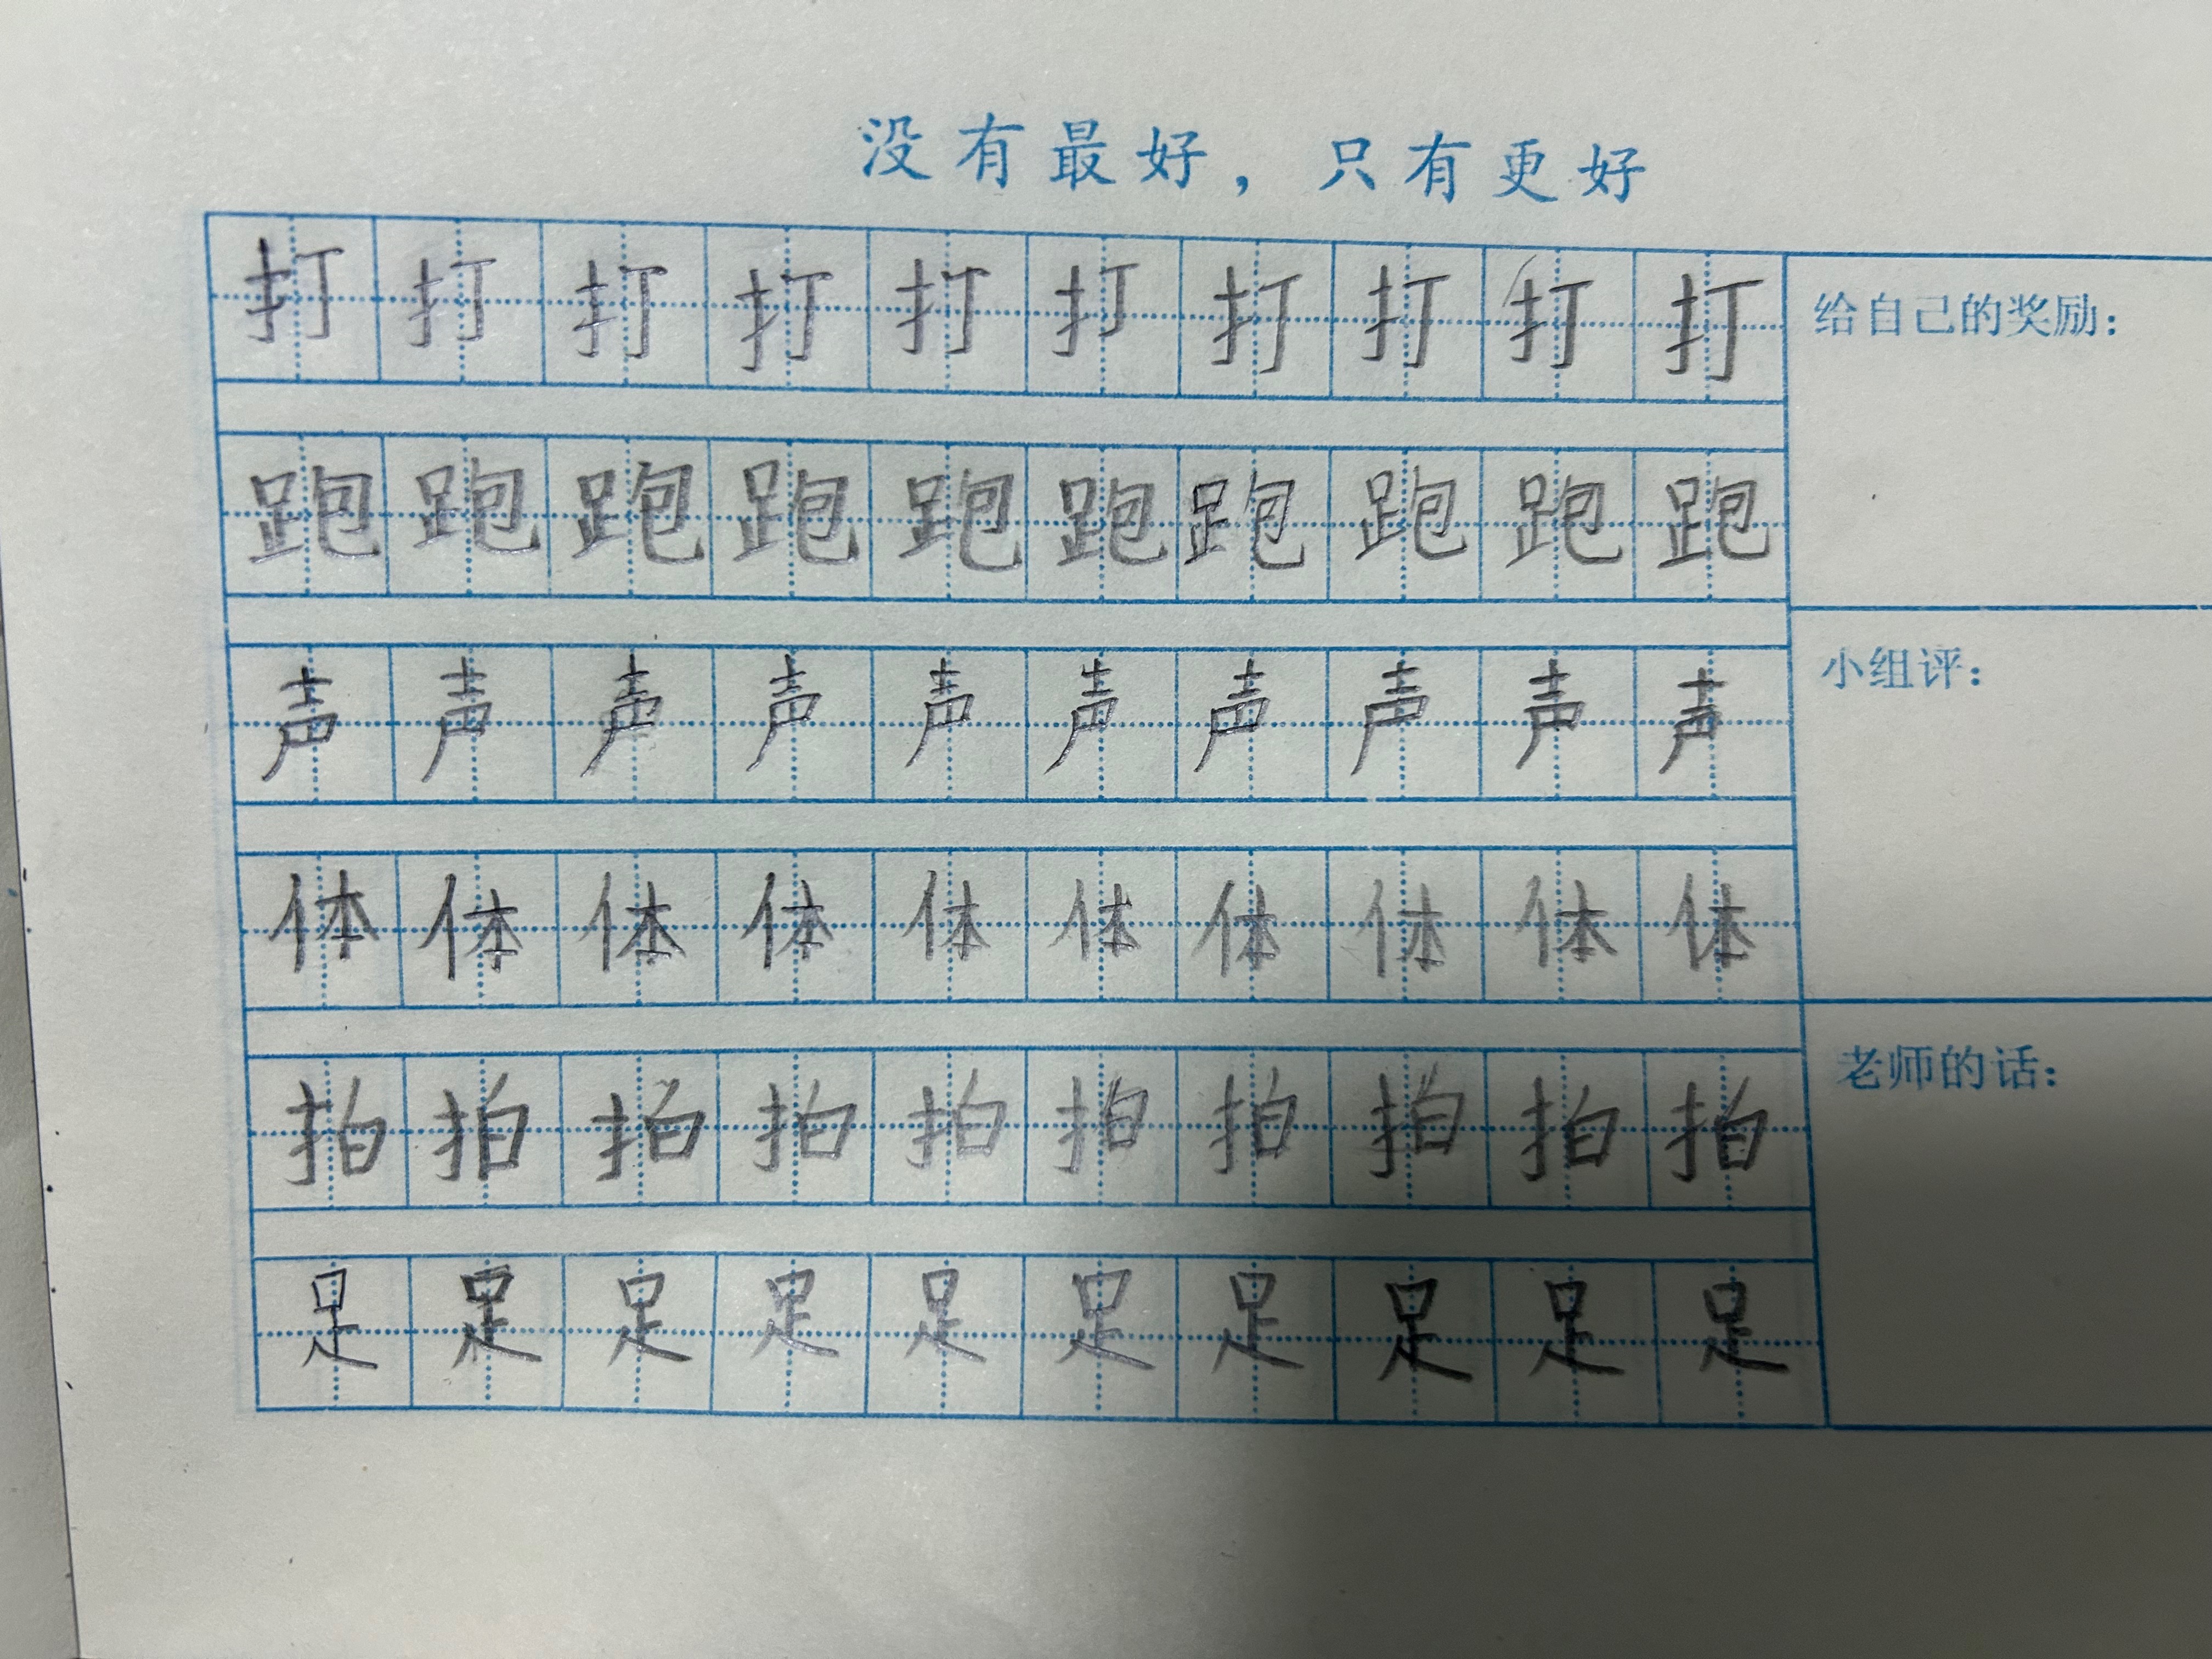 没有最好，只有更好
打打打打打打打打打打
给自己的奖励：
跑跑跑跑跑跑跑跑跑跑
声声声声声声声声声声
小组评：
体体体体体体体体体体
拍拍拍拍拍拍拍拍拍拍
老师的话：
足足足足足足足足足足